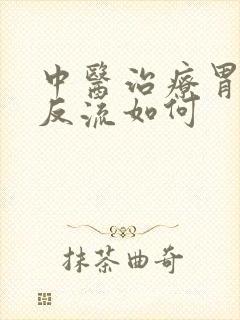 中醫治療胃
反流如何
抹茶曲奇